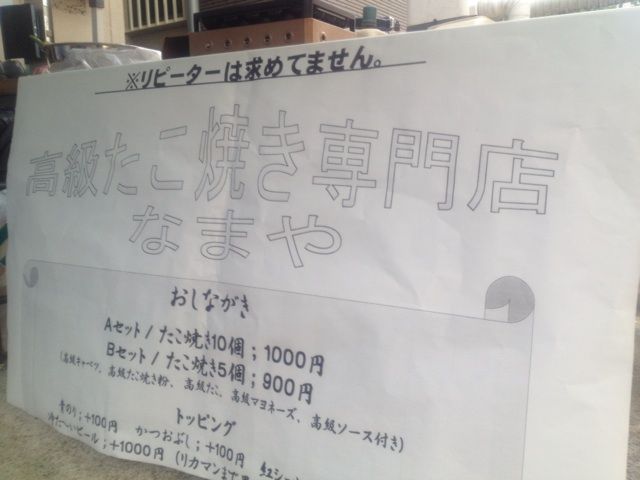 ※リピーターは求めてません。
高級たこ焼き専門店
なまや
おしながき
Aセット/たこ焼き10個;1000円
Bセット/たこ焼き5個;900円
(高級キャベツ、高級たこ焼き粉、高級たこ、高級マヨネーズ、高級ソース付き)
トッピング
青のり;+100円 かつおぶし;+100円 紅ショ
冷た~いビール;+1000円 (リカマン